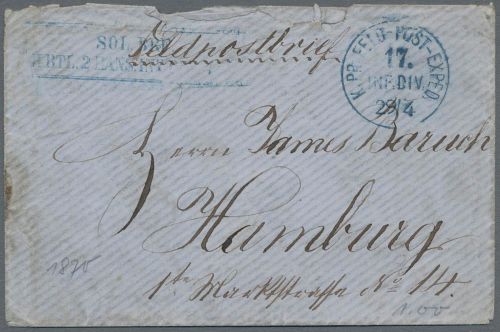 SOL
BTL. 2 HANS.
Feldpostbrief
K. PR. FELD-POST-EXPED.
17.
INF. DIV.
Herrn James Baruch
Hamburg
1ste Marktstrasse No 14.
1870
1.00